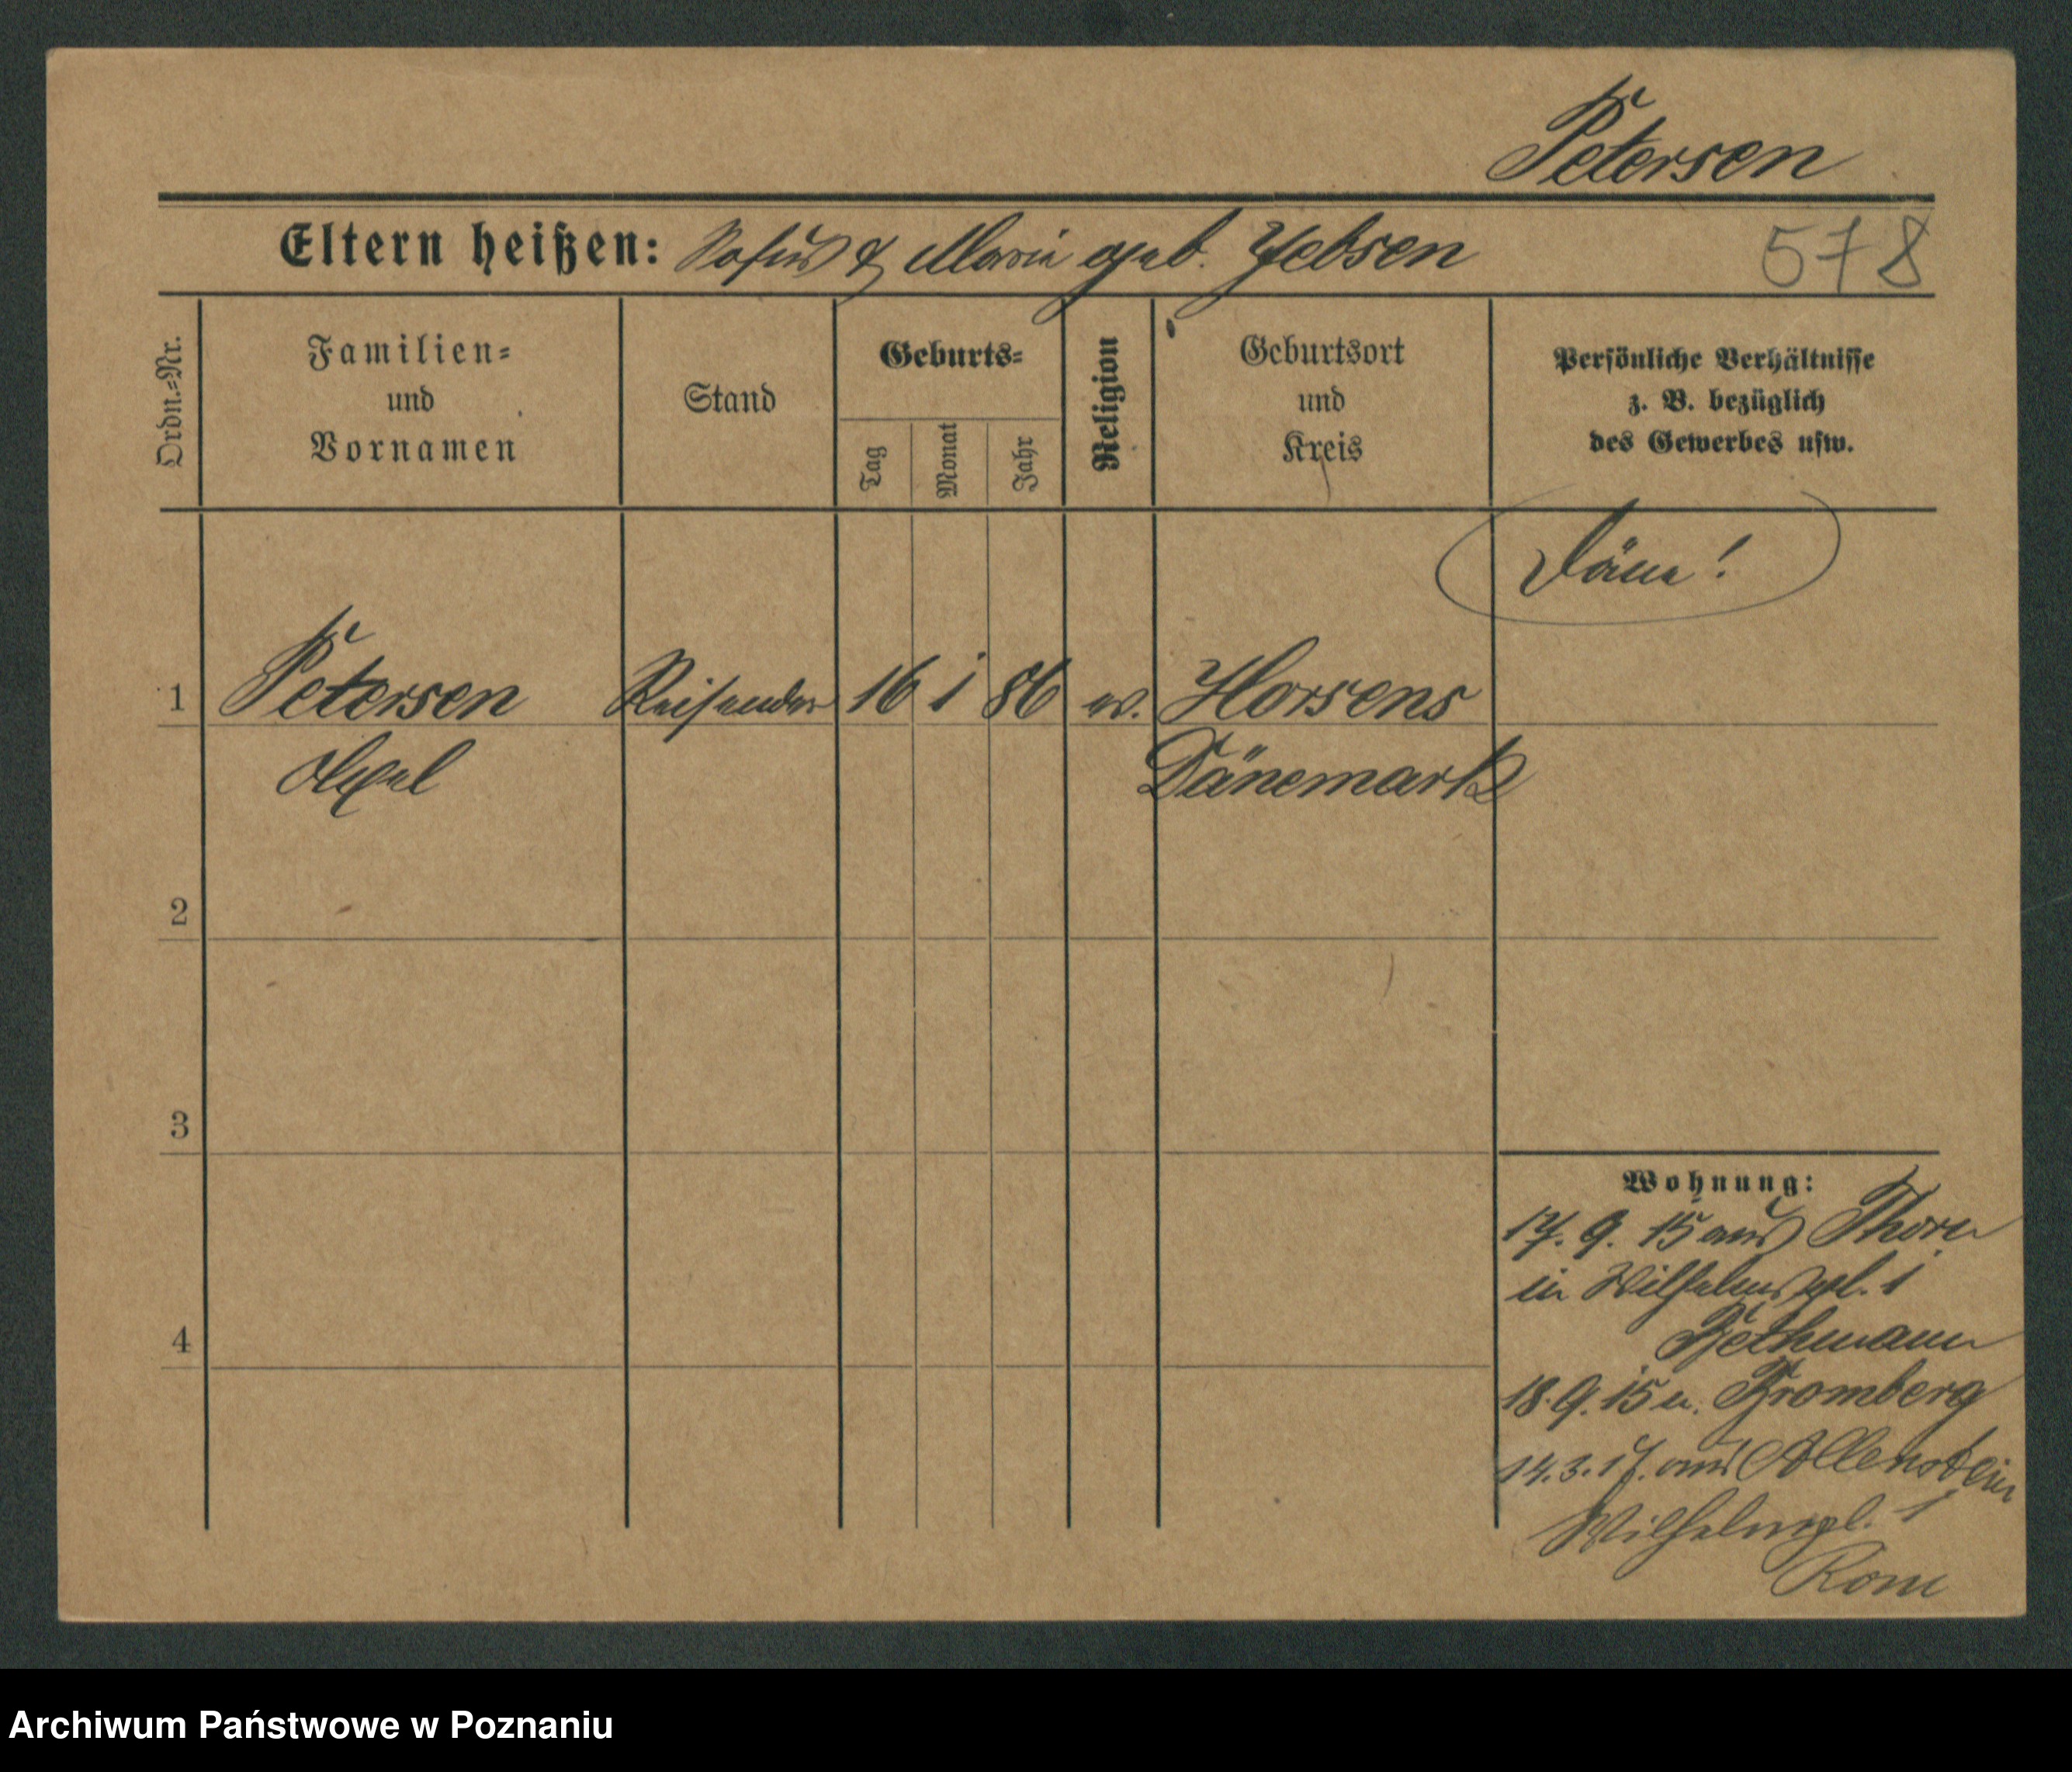 Petersen
Eltern heißen: Sofus & Marie geb. Jebsen
578
Ordn.=Nr.
Familien=
und
Vornamen
Stand
Geburts=
Tag
Monat
Jahr
Religion
Geburtsort
und
Kreis
Persönliche Verhältnisse
z. B. bezüglich
des Gewerbes usw.
Däne!
1 Petersen Reisender 16 1 86 ev. Horsens
Axel Dänemark
2
3
4
Wohnung:
17. 9. 15 aus Thorn
in Wilhelmspl. 1
Bethmann
18. 9. 15 n. Bromberg
14. 3. 17. aus Allenstein
Wilhelmspl. 1
Rome
Archiwum Państwowe w Poznaniu